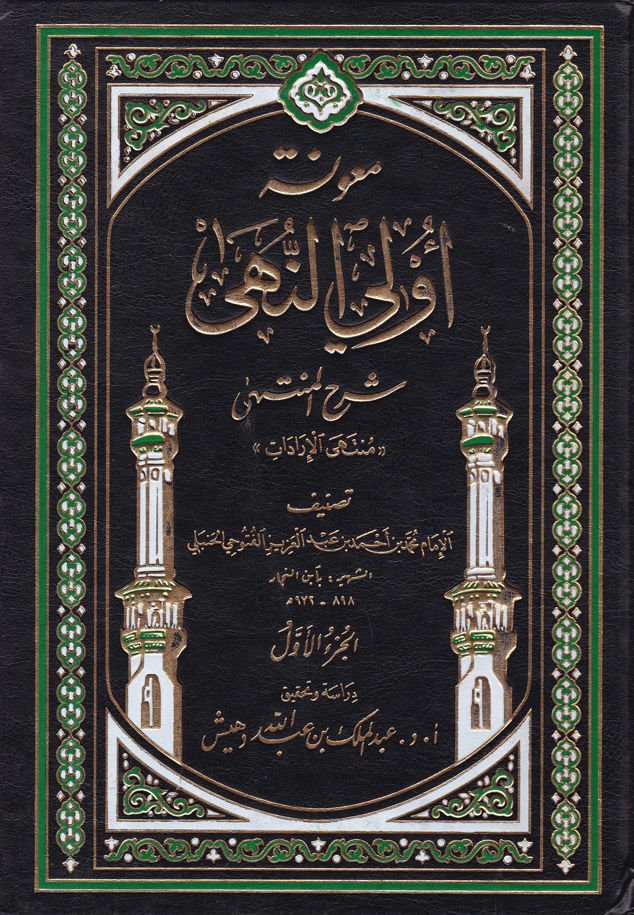 معونة
أُوْلي النُّهَىٰ
شرح المنتهىٰ
«مُنتَهَى الإِرَادَاتِ»
تصنيف
الإمام محمّد بن أحمد بن عبد العزيز الفتوحي الحنبلي
الشهير : بابن النجار
٨٩٨ - ٩٧٢ه
الجُزءُ الأَوَّلُ
دراسة وتحقيق
أ . د . عبد الملك بن عبد الله دهيش